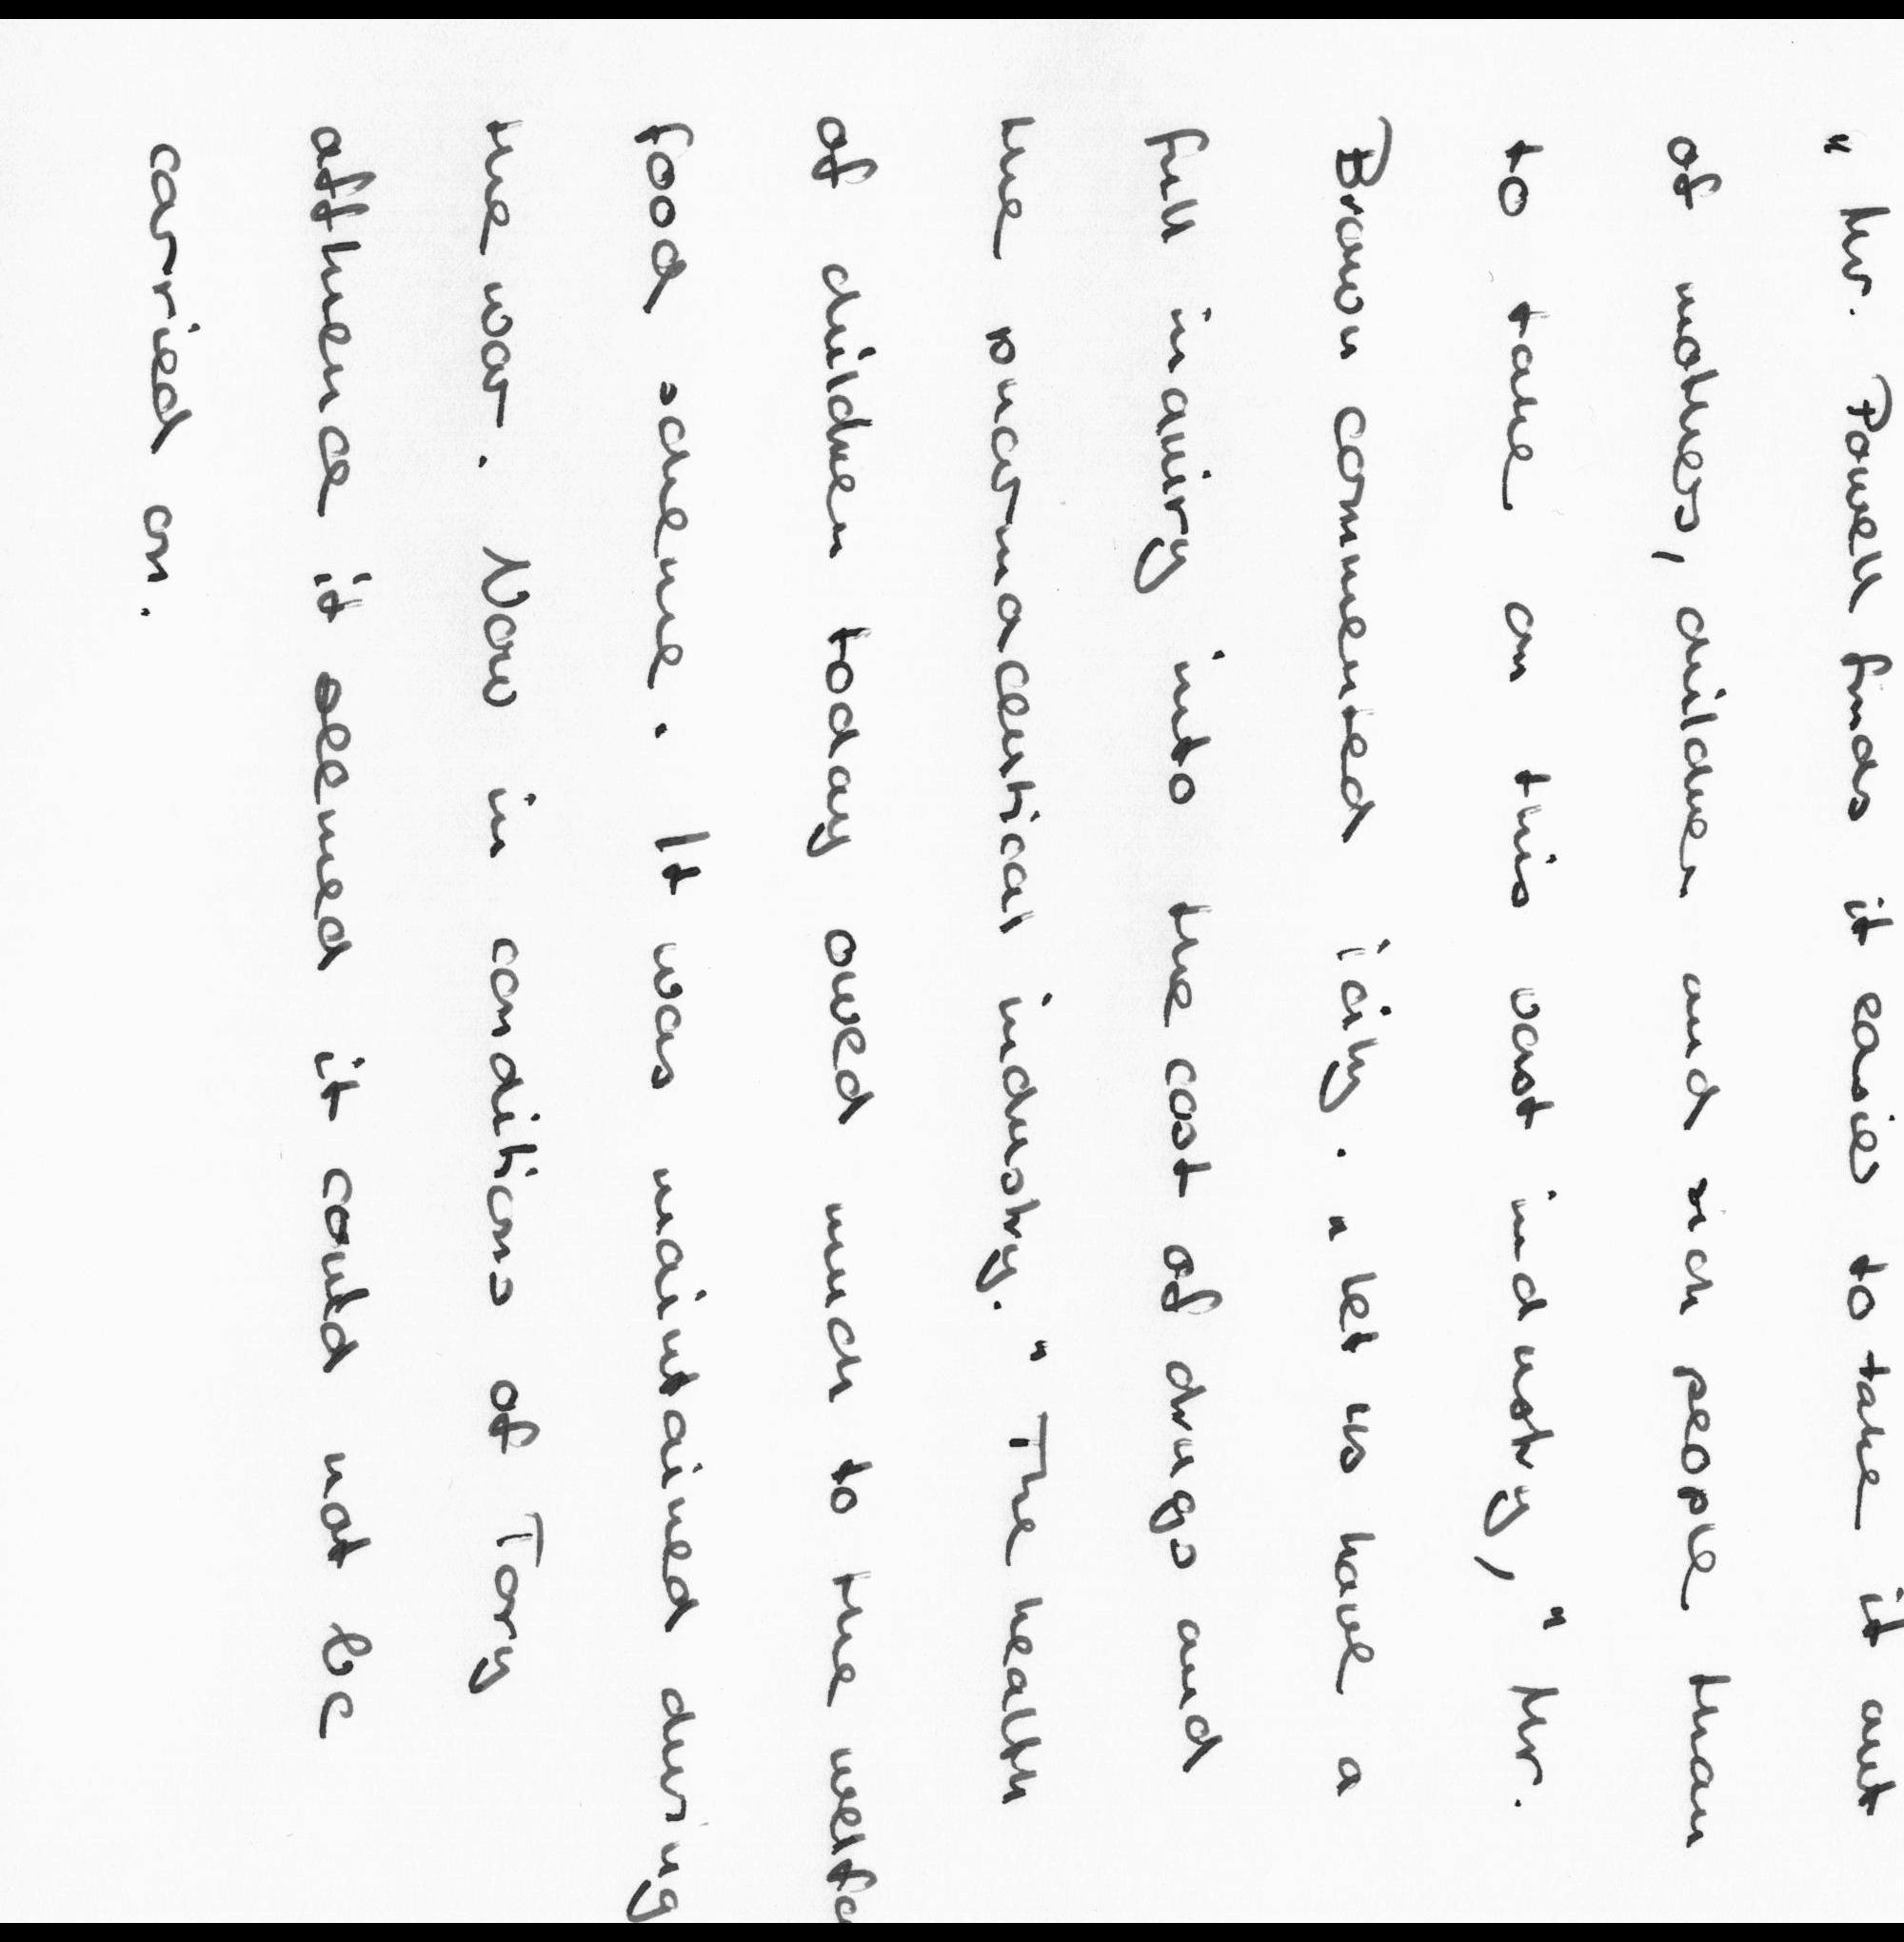 " Mr. Powell finds it easier to take it out
of mothers, children and rich people than
to take on this vast industry, " Mr.
Brown commented icily. " Let us have a
full inquiry into the cost of drugs and
the pharmaceutical industry. " The health
of children today owed much to the
food scheme. It was maintained during
the war. Now in conditions of Tory
affluence it seemed it could not be
carried on.